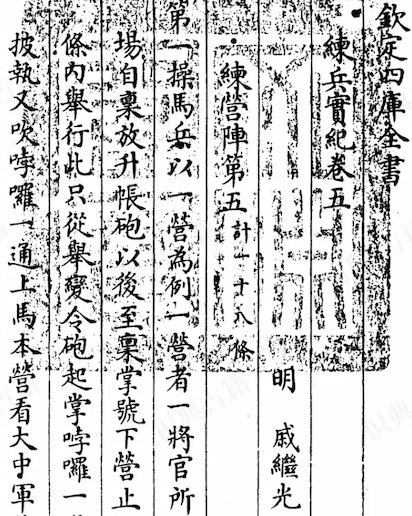 欽定四庫全書
練兵實紀卷五
明　戚繼光
練營陣第五計一十八條
第一操馬兵以一營為例一營者一將官所
場自稟放升帳砲以後至稟掌號下營止
條內舉行此只從舉變令砲起掌哱囉一
披執又吹哱囉一通上馬本營看大中軍